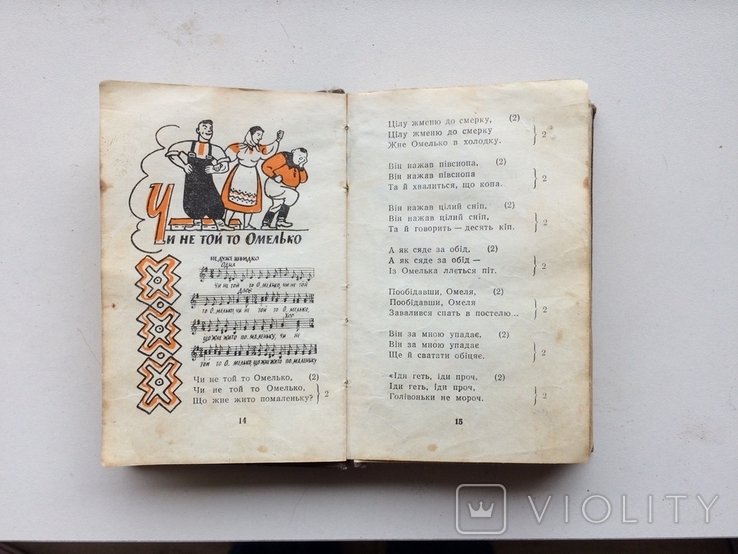 Чи не той то Омелько
НЕ ДУЖЕ ШВИДКО
ОДИН
Чи не той то О.мелько, чи не той
ДВОЄ
то О.мелько, чи не той то О.мелько,
ХОР
що жне жито по.маленьку, чи не
той то О.мелько, що жне жито по.маленьку
Чи не той то Омелько, (2)
Чи не той то Омелько,
Що жне жито помаленьку? 2
14
Цілу жменю до смерку, (2)
Цілу жменю до смерку
Жне Омелько в холодку. 2
Він нажав півснопа, (2)
Він нажав півснопа
Та й хвалиться, що копа. 2
Він нажав цілий сніп, (2)
Він нажав цілий сніп,
Та й говорить — десять кіп. 2
А як сяде за обід, (2)
А як сяде за обід —
Із Омелька ллється піт. 2
Пообідавши, Омеля, (2)
Пообідавши, Омеля
Завалився спать в постелю... 2
Він за мною упадає, (2)
Він за мною упадає
Ще й сватати обіцяє. 2
«Іди геть, іди проч, (2)
Іди геть, іди проч,
Голівоньки не мороч. 2
15
VIOLITY